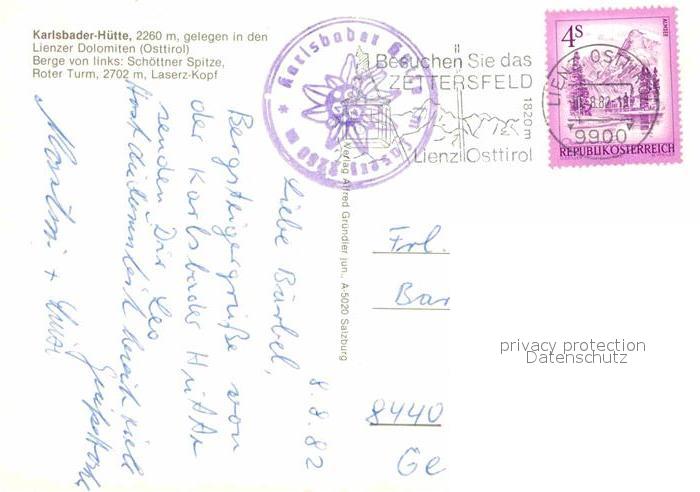 Karlsbader-Hütte, 2260 m, gelegen in den
Lienzer Dolomiten (Osttirol)
Berge von links: Schöttner Spitze,
Roter Turm, 2702 m, Laserz-Kopf
* Karlsbader Hütte im Laserz 2260 m
Besuchen Sie das
ZETTERSFELD
1820 m
Lienz Osttirol
4S
ALMSEE
LIENZ OSTTIROL
.8.82-1
9900
REPUBLIK ÖSTERREICH
Verlag Alfred Gründler jun., A-5020 Salzburg
8.8.82
Liebe Bärbel,
Bergsteigergrüße von
der Karlsbader Hütte
senden Dir Leo
Martin +
Frl.
Bar
8440
Ge
privacy protection
Datenschutz